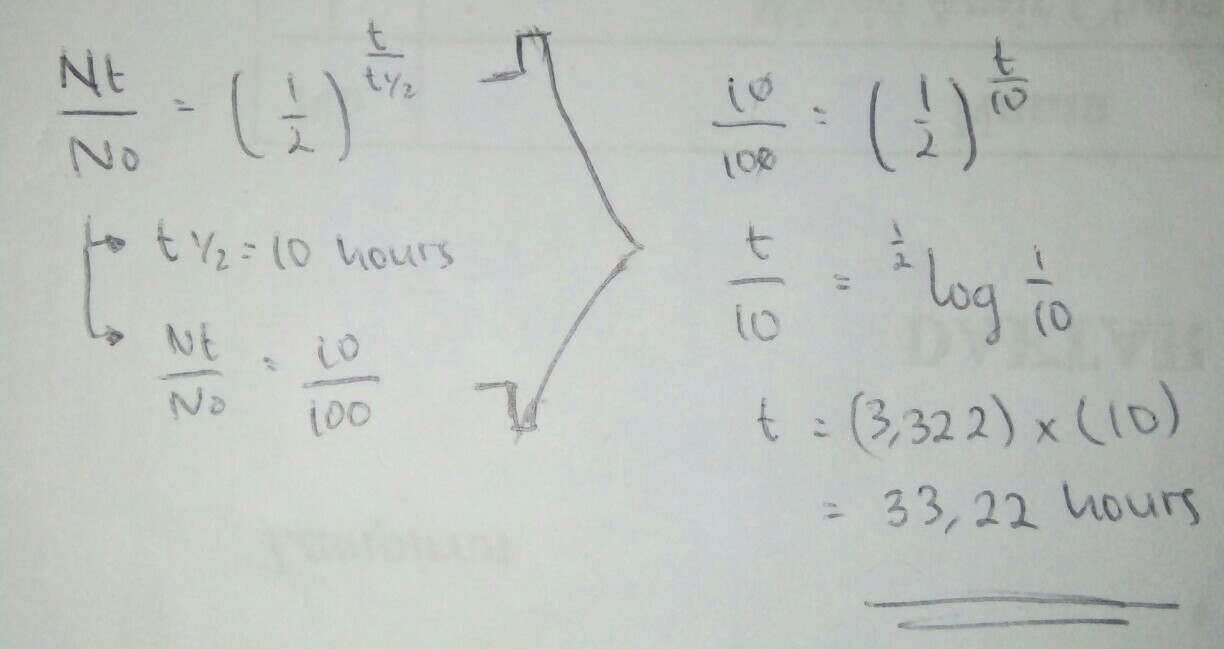 Nt/No = (1/2)^(t/t½)
t½ = 10 hours
Nt/No = 10/100
10/100 = (1/2)^(t/10)
t/10 = ½log 1/10
t = (3,322) x (10)
= 33,22 hours